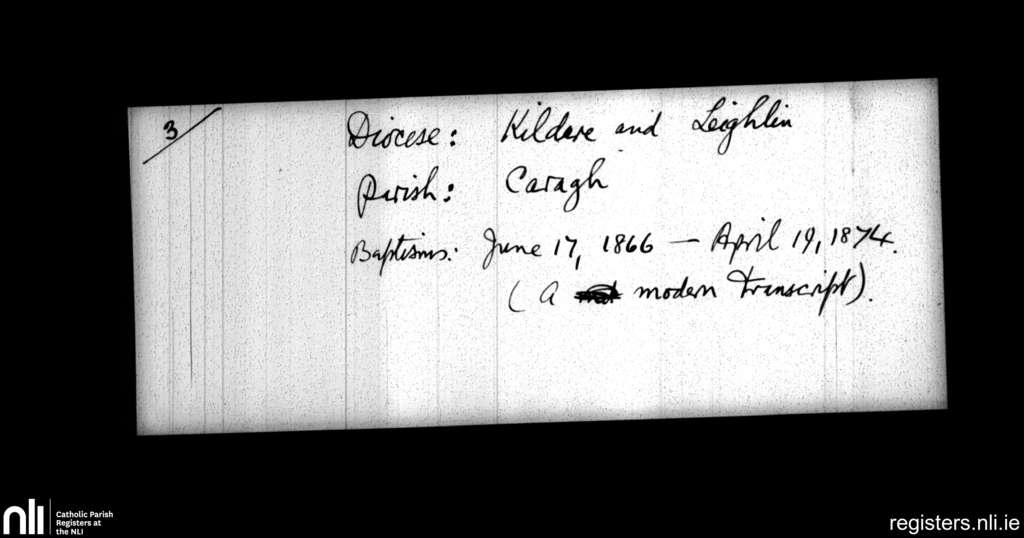 3/
Diocese: Kildare and Leighlin
Parish: Caragh
Baptisms: June 17, 1866 — April 19, 1874.
( A modern transcript).
nli
Catholic Parish
Registers at
the NLI
registers.nli.ie